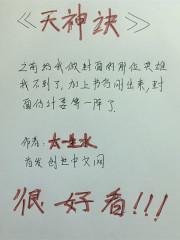 《天神诀》
之前给我做封面的那位英雄
我不到了,加上书名刚出来,封
面估计要等一阵了.
作者:大是水
首发创世中文网
很好看!!!